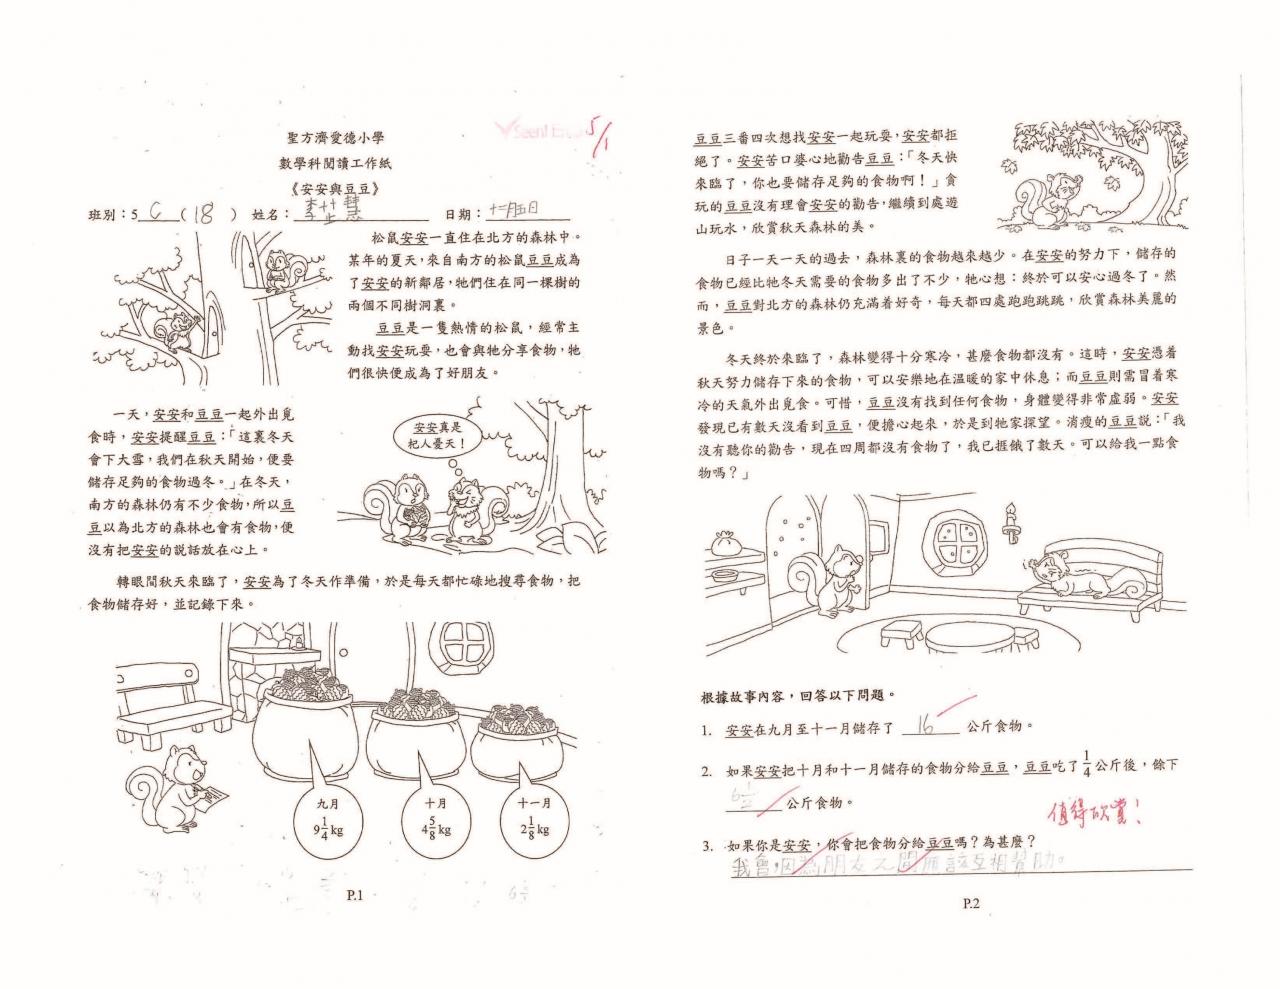 聖方濟愛德小學
數學科閱讀工作紙
《安安與豆豆》
班別：5 C (18) 姓名： 日期：十二月五日
5/1
松鼠安安一直住在北方的森林中。
某年的夏天，來自南方的松鼠豆豆成為
了安安的新鄰居，牠們住在同一棵樹的
兩個不同樹洞裏。
豆豆是一隻熱情的松鼠，經常主
動找安安玩耍，也會與牠分享食物，牠
們很快便成為了好朋友。
一天，安安和豆豆一起外出覓
食時，安安提醒豆豆：「這裏冬天
會下大雪，我們在秋天開始，便要
儲存足夠的食物過冬。」在冬天，
南方的森林仍有不少食物，所以豆
豆以為北方的森林也會有食物，便
沒有把安安的說話放在心上。
安安真是
杞人憂天！
轉眼間秋天來臨了，安安為了冬天作準備，於是每天都忙碌地搜尋食物，把
食物儲存好，並記錄下來。
九月
9 1/4 kg
十月
4 5/8 kg
十一月
2 1/8 kg
P.1
豆豆三番四次想找安安一起玩耍，安安都拒
絕了。安安苦口婆心地勸告豆豆：「冬天快
來臨了，你也要儲存足夠的食物啊！」貪
玩的豆豆沒有理會安安的勸告，繼續到處遊
山玩水，欣賞秋天森林的美。
日子一天一天的過去，森林裏的食物越來越少。在安安的努力下，儲存的
食物已經比牠冬天需要的食物多出了不少，牠心想：終於可以安心過冬了。然
而，豆豆對北方的森林仍充滿着好奇，每天都四處跑跑跳跳，欣賞森林美麗的
景色。
冬天終於來臨了，森林變得十分寒冷，甚麼食物都沒有。這時，安安憑着
秋天努力儲存下來的食物，可以安樂地在溫暖的家中休息；而豆豆則需冒着寒
冷的天氣外出覓食。可惜，豆豆沒有找到任何食物，身體變得非常虛弱。安安
發現已有數天沒看到豆豆，便擔心起來，於是到牠家探望。消瘦的豆豆說：「我
沒有聽你的勸告，現在四周都沒有食物了，我已捱餓了數天。可以給我一點食
物嗎？」
根據故事內容，回答以下問題。
1. 安安在九月至十一月儲存了 16 公斤食物。
2. 如果安安把十月和十一月儲存的食物分給豆豆，豆豆吃了 1/4 公斤後，餘下
6 1/2 公斤食物。
值得欣賞！
3. 如果你是安安，你會把食物分給豆豆嗎？為甚麼？
我會，因為朋友之間應該互相幫助。
P.2